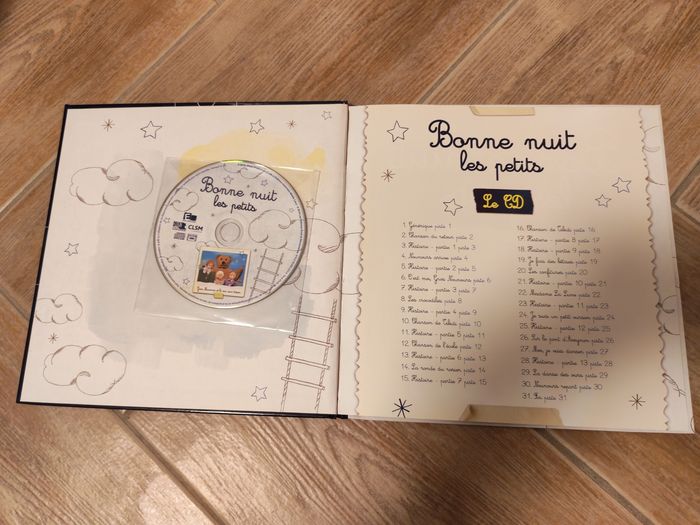 Bonne nuit
les petits
CLSM
Bonne nuit
les petits
Le CD
1. Générique piste 1
2. Chanson du retour piste 2
3. Histoire - partie 1 piste 3
4. Nounours arrive piste 4
5. Histoire - partie 2 piste 5
6. C'est moi, Gros Nounours piste 6
7. Histoire - partie 3 piste 7
8. Les incroyables piste 8
9. Histoire - partie 4 piste 9
10. Chanson de Tibidi piste 10
11. Histoire - partie 5 piste 11
12. Chanson de l'école piste 12
13. Histoire - partie 6 piste 13
14. La ronde du raisin piste 14
15. Histoire - partie 7 piste 15
16. Chanson de Tibidi piste 16
17. Histoire - partie 8 piste 17
18. Histoire - partie 9 piste 18
19. Je fais des bêtises piste 19
20. Les confitures piste 20
21. Histoire - partie 10 piste 21
22. Madame La Lune piste 22
23. Histoire - partie 11 piste 23
24. Je suis un petit ourson piste 24
25. Histoire - partie 12 piste 25
26. Sur le pont d'Avignon piste 26
27. Moi, je suis danseur piste 27
28. Histoire - partie 13 piste 28
29. La danse des ours piste 29
30. Nounours repart piste 30
31. Fin piste 31